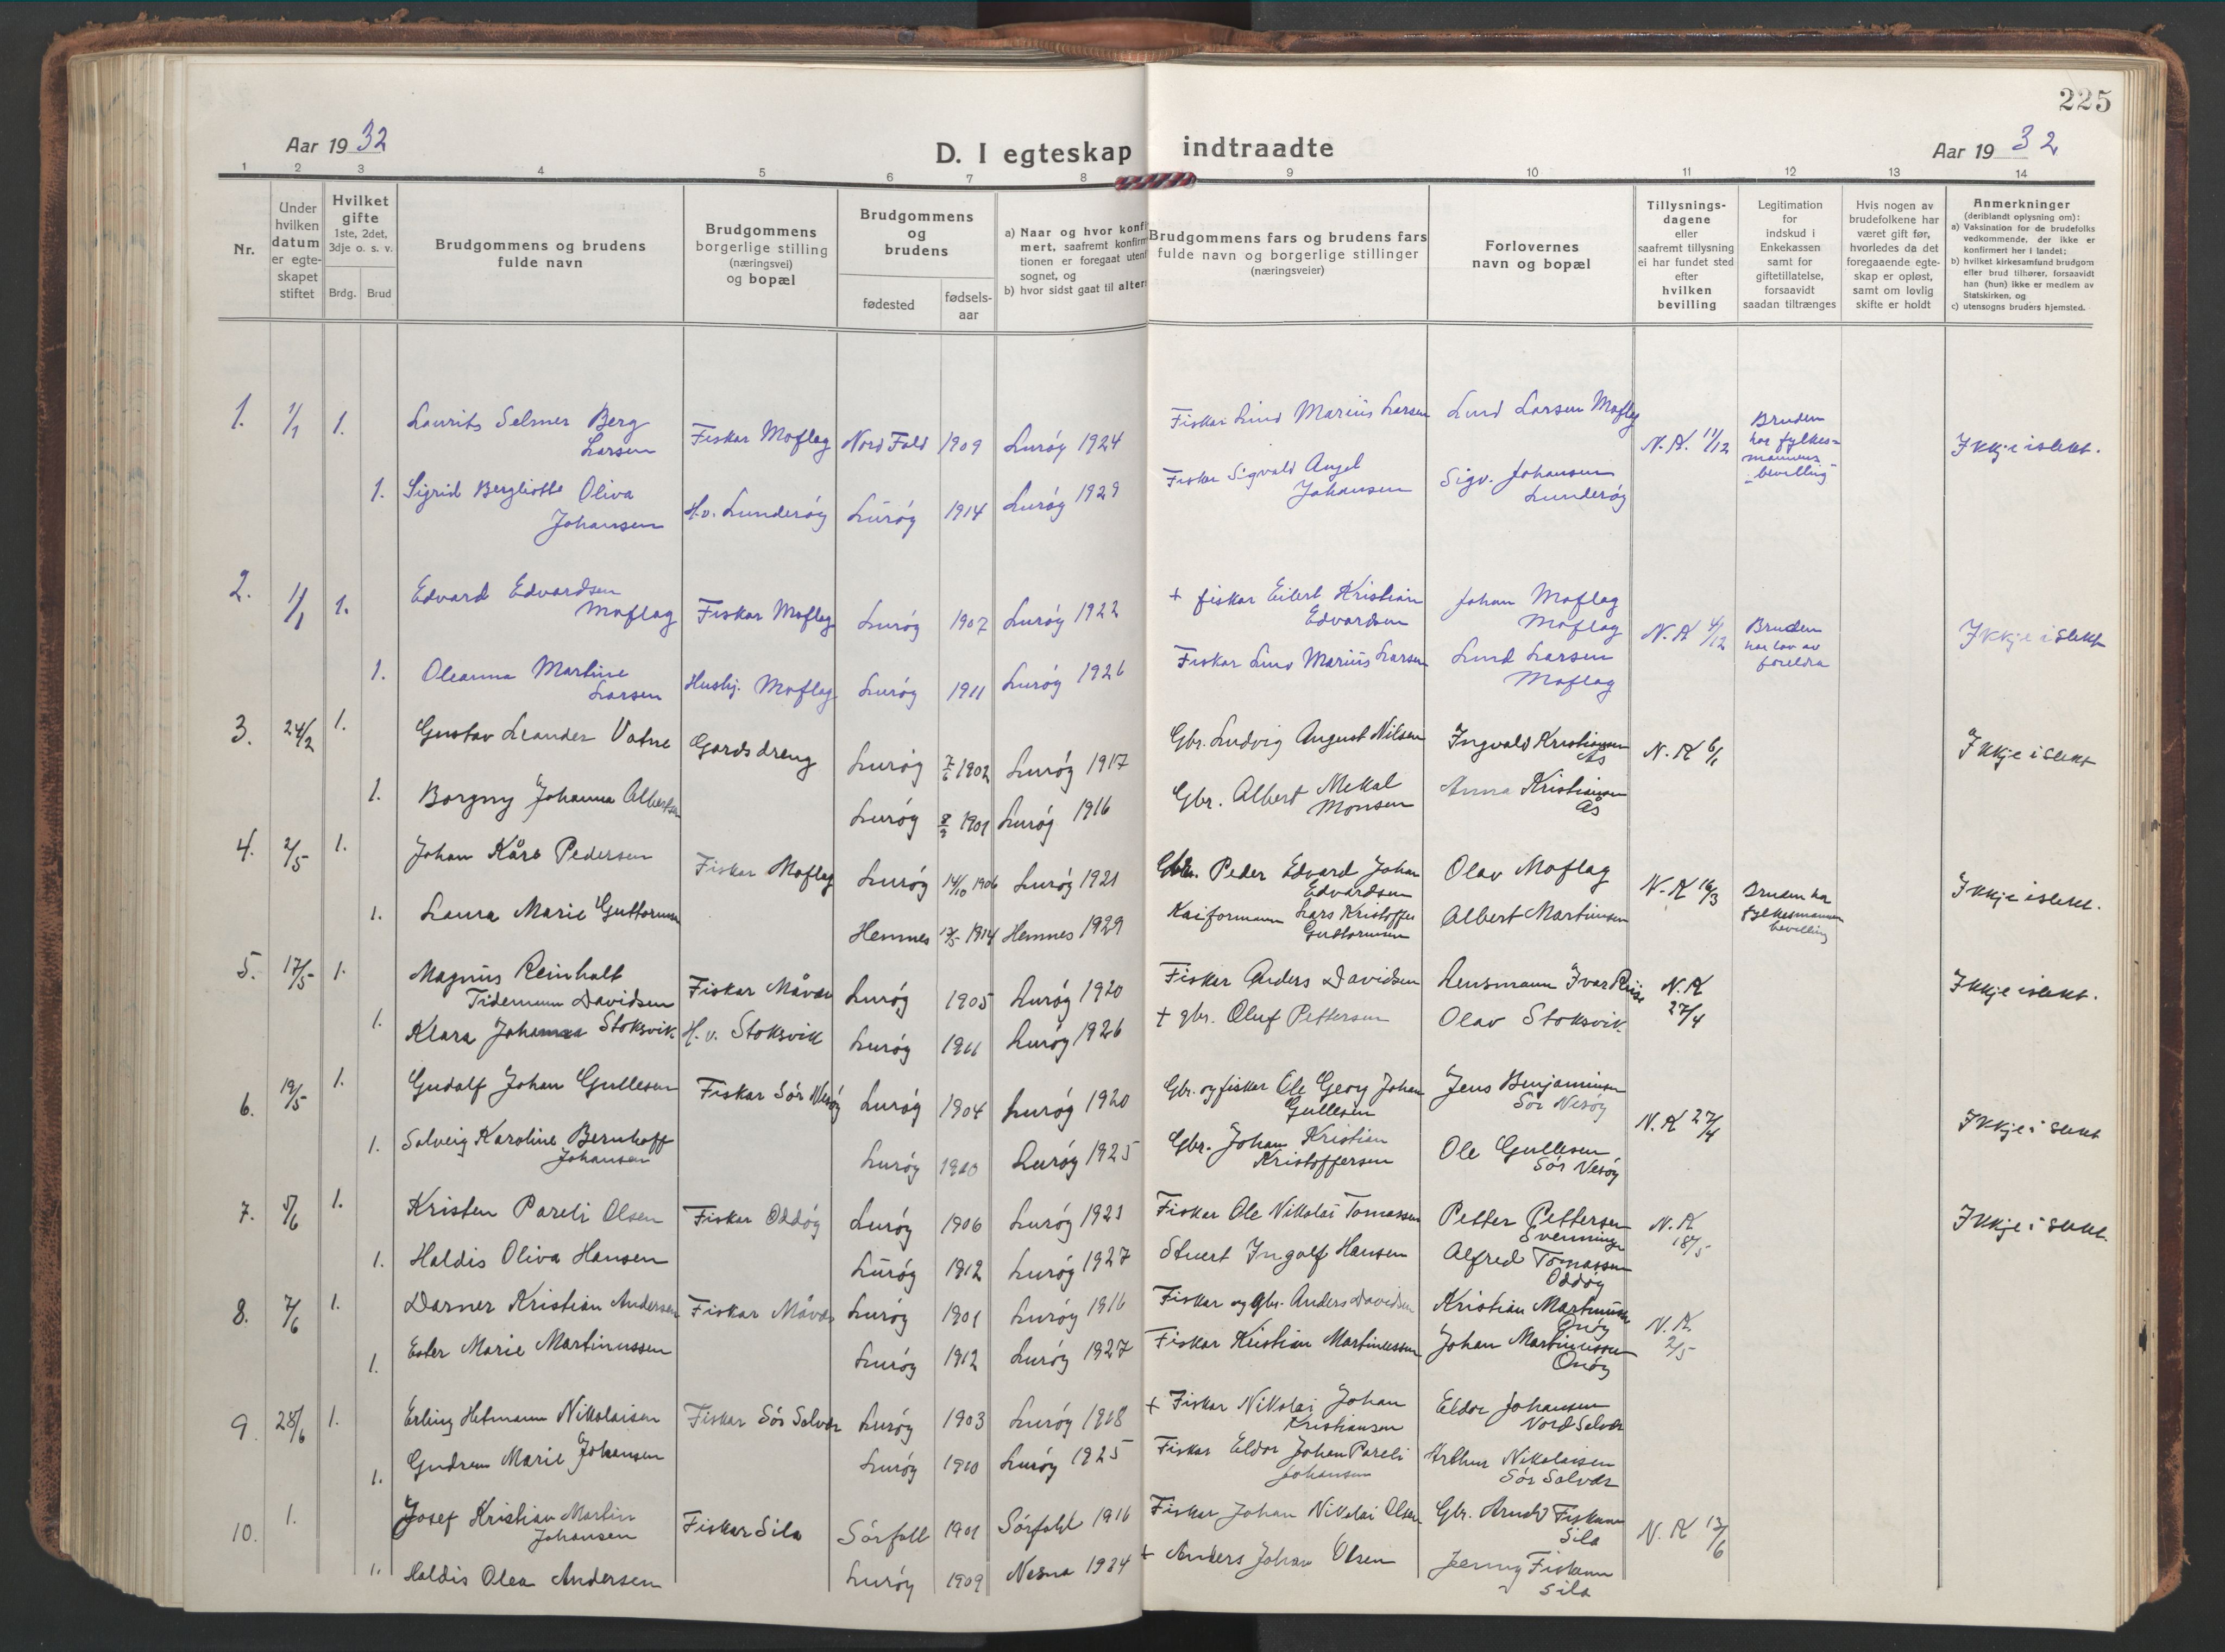 225
Aar 1932
D. I egteskap indtraadte
Aar 1932
1 2 3 4 5 6 7 8 9 10 11 12 13 14
Nr.
Under
hvilken
datum
er egte-
skapet
stiftet
Hvilket
gifte
1ste, 2det,
3dje o. s. v.
Brdg. Brud
Brudgommens og brudens
fulde navn
Brudgommens
borgerlige stilling
(næringsvei)
og bopæl
Brudgommens
og
brudens
fødested
fødsels-
aar
a) Naar og hvor konfi
mert, saafremt konfirm
tionen er foregaat utenf
sognet, og
b) hvor sidst gaat til altern
Brudgommens fars og brudens fars
fulde navn og borgerlige stillinger
(næringsveier)
Forlovernes
navn og bopæl
Tillysnings-
dagene
eller
saafremt tillysning
ei har fundet sted
efter
hvilken
bevilling
Legitimation
for
indskud i
Enkekassen
samt for
giftetillatelse,
forsaavidt
saadan tiltrænges
Hvis nogen av
brudefolkene har
været gift før,
hvorledes da det
foregaaende egte-
skap er opløst,
samt om lovlig
skifte er holdt
Anmerkninger
(deriblandt oplysning om):
a) Vaksination for de brudefolks
vedkommende, der ikke er
konfirmert her i landet;
b) hvilket kirkesamfund brudgom
eller brud tilhører, forsaavidt
han (hun) ikke er medlem av
Statskirken, og
c) utensogns bruders hjemsted.
1. 1/1 1. Laurits Selmer Berg
Larsen Fiskar Moflag Nord Fold 1909 Lurøy 1924 Fiskar Lind Marius Larsen Lind Larsen Moflag N.K. 11/12 Bruden
har fylkes=
mannens
bevilling Ikkje i slekt.
1. Sigrid Bergliotte Oliva
Johansen H.v. Lunderøy Lurøy 1914 Lurøy 1929 Fiskar Sigvald Angel
Johansen Sigv. Johansen
Lunderøy
2. 1/1 1. Edvard Edvardsen
Moflag Fiskar Moflag Lurøy 1907 Lurøy 1922 + fiskar Eilert Kristian
Edvardsen Johan Moflag
Moflag N.K 4/12 Bruden
har lov av
foreldra Ikkje i slekt
1. Oleanna Martine
Larsen Hushj. Moflag Lurøy 1911 Lurøy 1926 Fiskar Lind Marius Larsen Lind Larsen
Moflag
3. 24/2 1. Gustav Leander Vatne Gardsdreng Lurøy 7/6 1902 Lurøy 1917 Gbr. Ludvig August Nilsen Ingvald Kristiansen
Ås N.K 6/1 Ikkje i slekt
1. Borgny Johanna Albertsen Lurøy 1901 Lurøy 1916 Gbr. Albert Mekal
Monsen Anna Kristiansen
Ås
4. 2/5 1. Johan Kåre Pedersen Fiskar Moflag Lurøy 14/10 1906 Lurøy 1921 Gbr. Peder Edvard Johan
Edvardsen Olav Moflag N.K 16/3 Bruden har
fylkesmannen
bevilling Ikkje i slekt.
1. Laura Marie Guttormsen Hemnes 1914 Hemnes 1929 Kaiformann Lars Kristoffer
Guttormsen Albert Martinsen
5. 17/5 1. Magnus Reinholt
Tidemann Davidsen Fiskar Måvær Lurøy 1905 Lurøy 1920 Fiskar Anders Davidsen Lensmann Ivar Riise N.K
27/4 Ikkje i slekt.
1. Klara Johanna Stoksvik H.v. Stoksvik Lurøy 1911 Lurøy 1926 + gbr. Oluf Pettersen Olav Stoksvik
6. 19/5 1. Gudolf Johan Gullesen Fiskar Sør Nesøy Lurøy 1904 Lurøy 1920 Gbr. og fiskar Ole Georg Johan
Gullesen Jens Benjaminsen
Sør Nesøy N.K 27/4 Ikkje i slekt
1. Solveig Karoline Bernhoff
Johansen Lurøy 1910 Lurøy 1925 Gbr. Johan Kristian
Kristoffersen Ole Gullesen
Sør Nesøy
7. 5/6 1. Kristen Pareli Olsen Fiskar Oddøy Lurøy 1906 Lurøy 1921 Fiskar Ole Nikolai Tomassen Petter Pettersen
Svenningen N.K
18/5 Ikkje i slekt.
1. Haldis Oliva Hansen Lurøy 1912 Lurøy 1927 Stuert Ingolf Hansen Alfred Tomassen
Oddøy
8. 7/6 1. Darner Kristian Andersen Fiskar Måvær Lurøy 1901 Lurøy 1916 Fiskar og gbr. Anders Davidsen Kristian Martinussen
Onøy N.K.
2/5
1. Ester Marie Martinussen Lurøy 1912 Lurøy 1927 Fiskar Kristian Martinussen Johan Martinussen
Onøy
9. 28/6 1. Erling Hetmann Nikolaisen Fiskar Sør Solvær Lurøy 1903 Lurøy 1918 + Fiskar Nikolai Johan
Kristiansen Eldor Johansen
Nord Solvær
1. Gudrun Marie Johansen Lurøy 1910 Lurøy 1925 Fiskar Eldor Johan Pareli
Johansen Arthur Nikolaisen
Sør Solvær
10. 1. Josef Kristian Martin
Johansen Fiskar Sila Sørfold 1901 Sørfold 1916 Fiskar Johan Nikolai Olsen Gbr. Arndt Fiskum
Sila N.K 13/6
1. Haldis Olea Andersen Lurøy 1909 Nesna 1924 + Anders Johan Olsen Jenny Fiskum
Sila